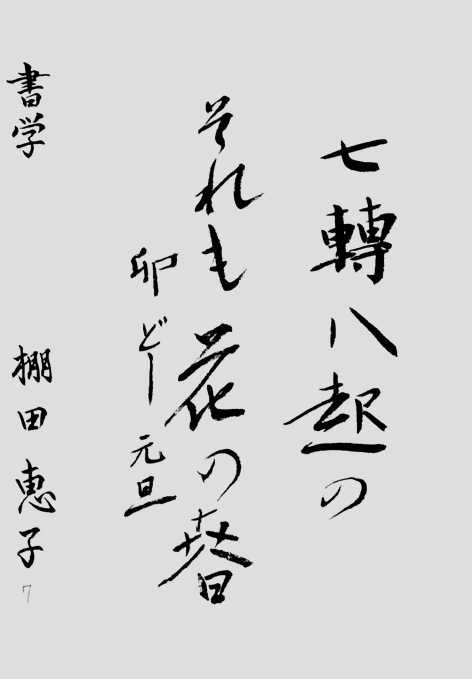 七轉八起の
それも花の春
卯どし 元旦
書学 棚田恵子
7